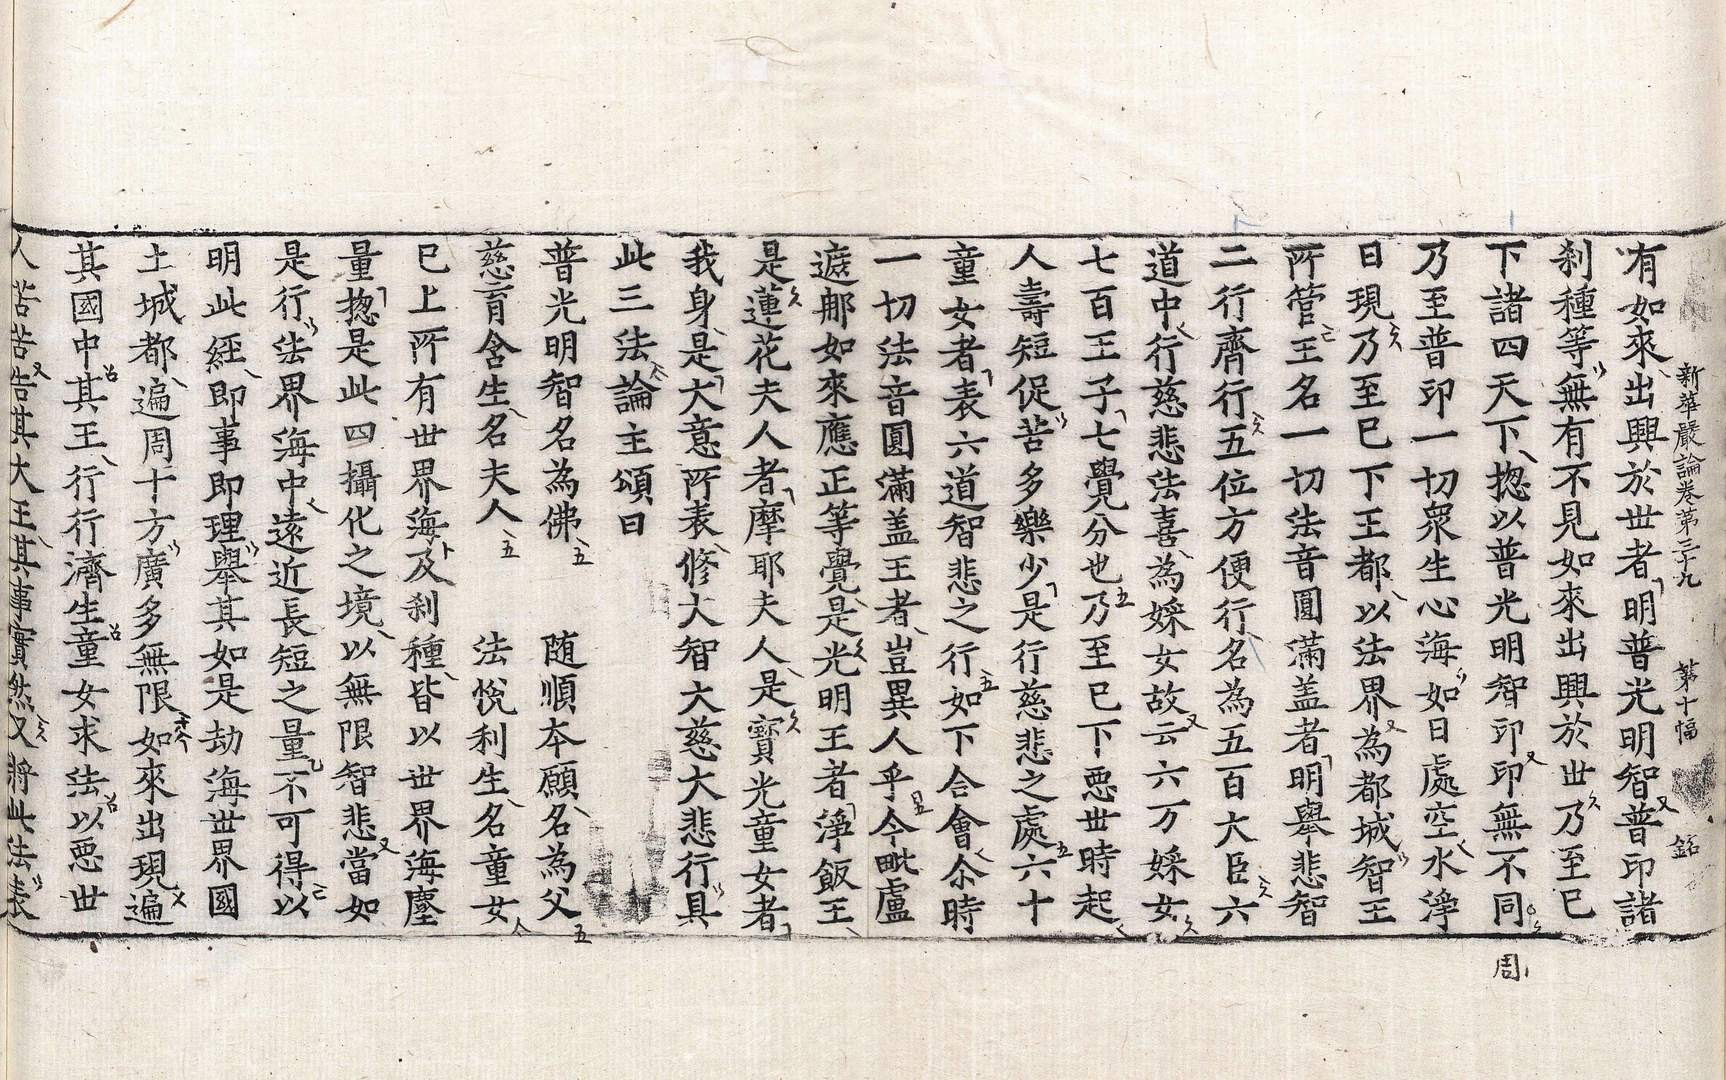 新華嚴論卷第三十九 第十幅 銘
有如來出興於世者明普光明智普印諸
刹種等無有不見如來出興於世乃至已
下諸四天下揔以普光明智印印無不同
周
乃至普印一切衆生心海如日處空水淨
日現乃至已下王都以法界為都城智王
所管王名一切法音圓滿盖王者明舉悲智
二行齊行五位方便行名為五百大臣六
道中行慈悲法喜為婇女故云六万婇女
七百王子七覺分也乃至已下惡世時起
人壽短促苦多樂少是行慈悲之處六十
童女者表六道智悲之行如下合會尒時
一切法音圓滿盖王者豈異人乎今毗盧
遮那如來應正等覺是光明王者淨飯王
是蓮花夫人者摩耶夫人是寶光童女者
我身是大意所表修大智大慈大悲行具
此三法論主頌曰
普光明智名為佛 随順本願名為父
慈育含生名夫人 法恱利生名童女
已上所有世界海及刹種皆以世界海塵
量揔是此四攝化之境以無限智悲當如
是行法界海中遠近長短之量不可得以
明此經即事即理舉其如是劫海世界國
土城都遍周十方廣多無限如來出現遍
其國中其王行行濟生童女求法以惡世
人苦苦告其大王其事實然又將此法表